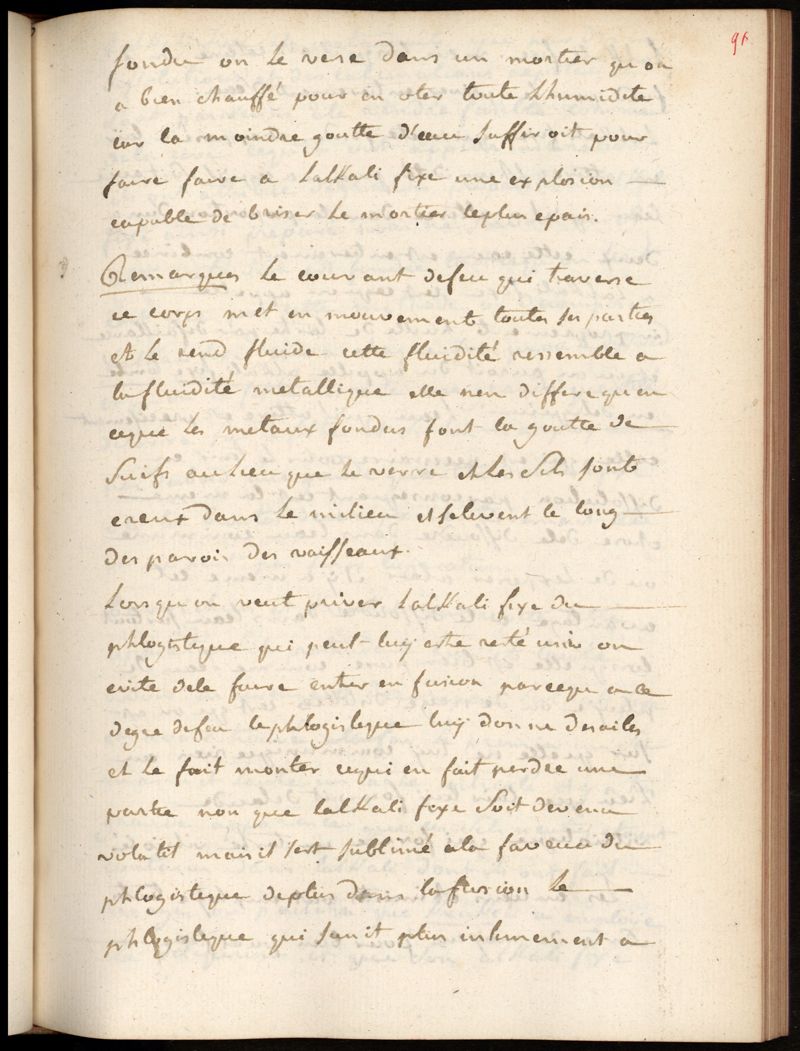 91
fondu on le verse dans un mortier qu on
a bien chauffé pour en oter toute Lhumidite
car la moindre goutte d'eau suffiroit pour
faire faire a Lalkali fixe une explosion
capable de briser le mortier leplus epais.
Remarques Le courant defeu qui traverse
ce corps met en mouvement toutes ses parties
et Le rend fluide cette fluidité ressemble a
la fluidité metallique elle nen differe quen
ceque Les metaux fondus font la goutte de
Suifs au Lieu que le verre et Les Sels sont
creux dans Le milieu et selevent le long
des parois des vaisseaux.
Lorsqu on veut priver Lalkali fixe du
phlogistique qui peut luy estre resté uni on
evite dele faire entrer en fusion parcequ a ce
degre defeu lephlogistique luy donne des ailes
et Le fait monter cequi en fait perdre une
partie non que Lalkali fixe Soit devenu
volatil mais il sest sublimé ala faveur du
phlogistique deplus dans la fusion Le
phlogistique qui sunit plus intimement a